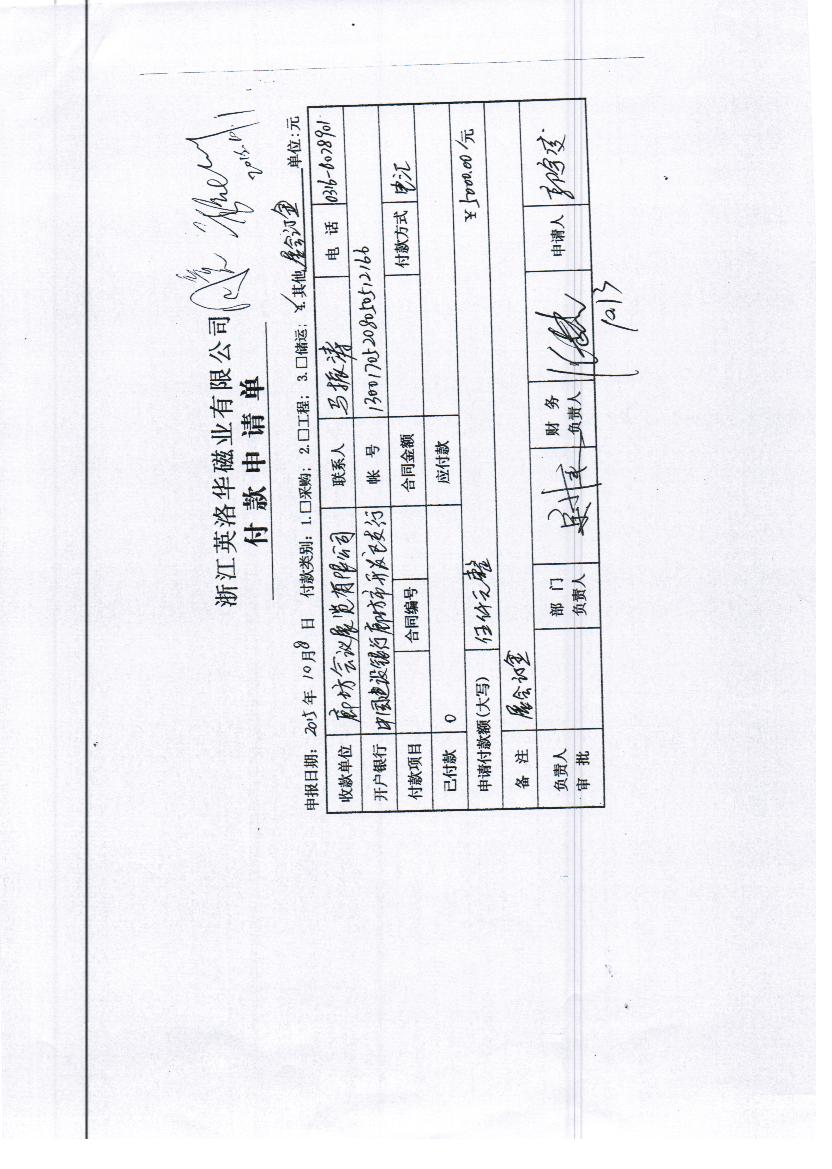 浙江英洛华磁业有限公司
付款申请单
2015.10.11
申报日期: 2015年 10月8日 付款类别: 1.□采购; 2.□工程; 3.□储运; 4.其他 展会订金 单位:元
收款单位 廊坊会议展览有限公司 联系人 马振涛 电话 0316-6078901
开户银行 中国建设银行廊坊市开发区支行 帐号 13001705208050512166
付款项目 合同编号 合同金额 付款方式 电汇
已付款 0 应付款
申请付款额(大写) 伍仟元整 ¥5000.00/元
备注 展会订金
负责人审批 部门负责人 财务负责人 申请人
10/3